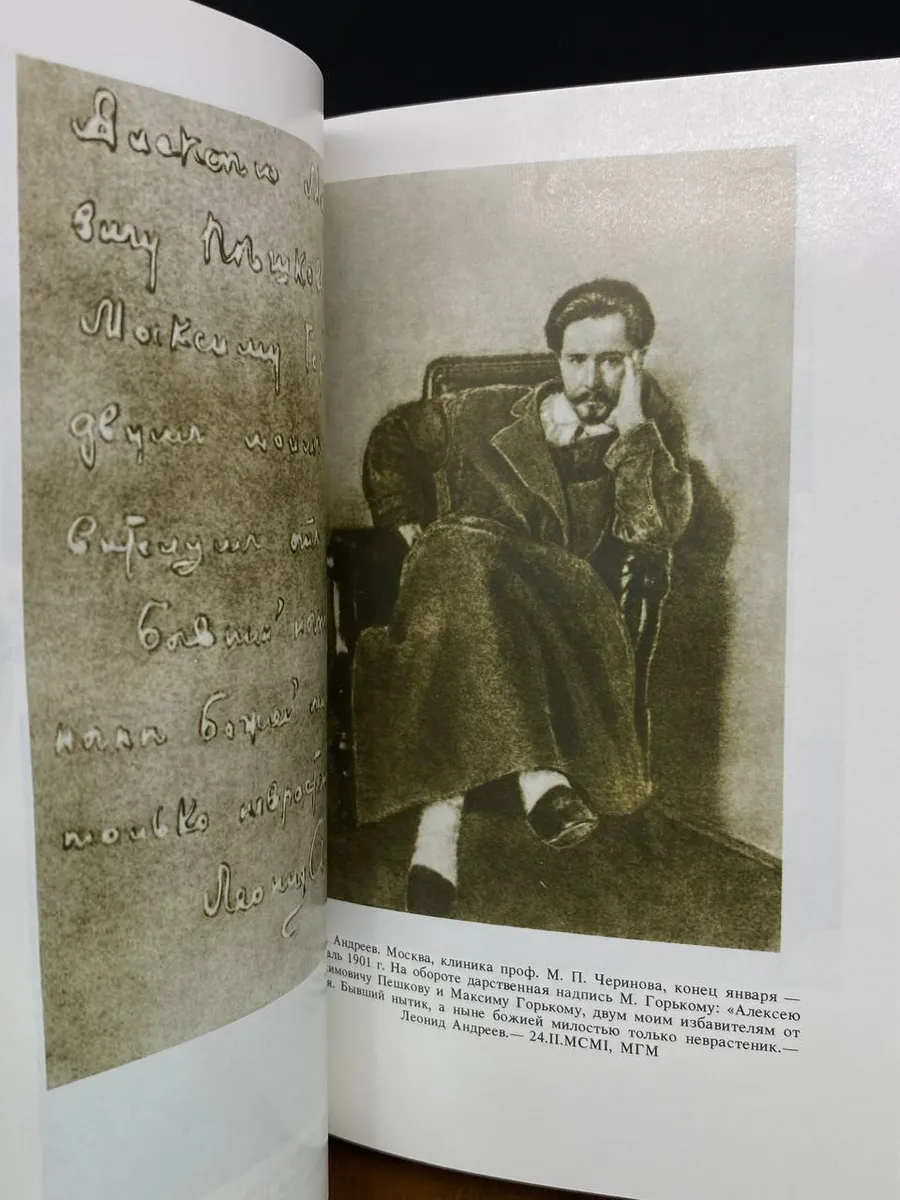 Алексею М
вичу Пѣшков
Максиму Го
двумъ моимъ
витслимъ отъ
бывший
нынѣ божіей ми
только неврасте
Леонид
Андреев. Москва, клиника проф. М. П. Черинова, конец января —
аль 1901 г. На обороте дарственная надпись М. Горькому: «Алексею
имовичу Пешкову и Максиму Горькому, двум моим избавителям от
я. Бывший нытик, а ныне божией милостью только неврастеник.—
Леонид Андреев.— 24.II.MCMI, МГМ